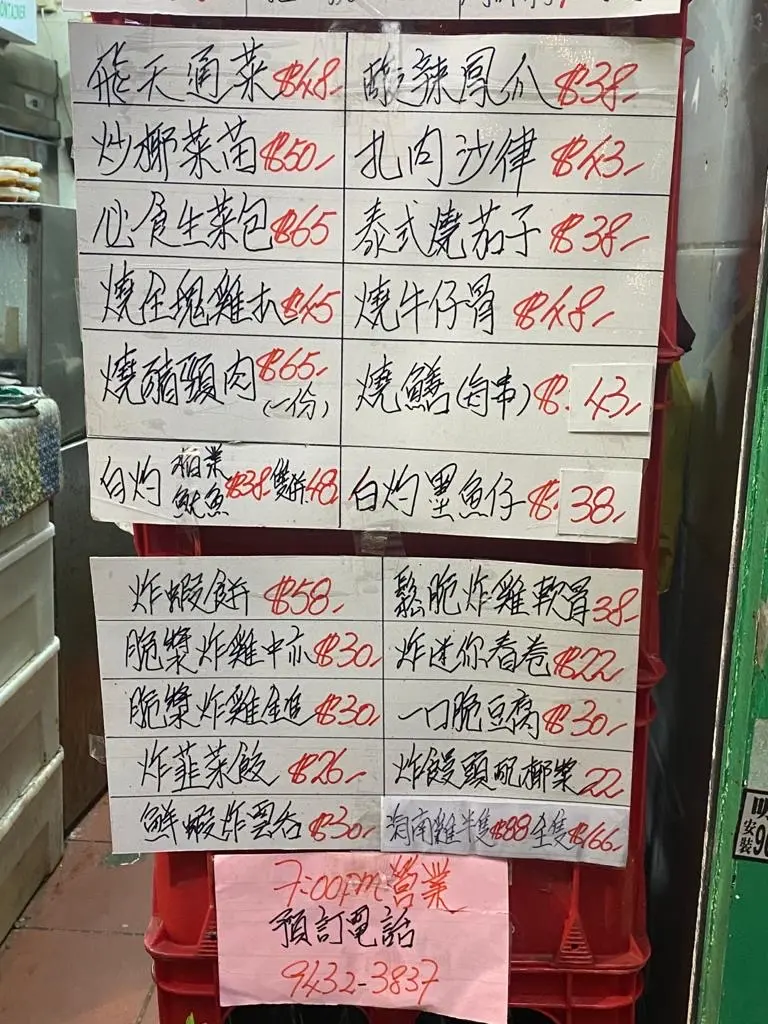 CONTAINER
飛天通菜 $48-
酸辣鳳爪 $38-
炒椰菜苗 $50-
扎肉沙律 $43-
必食生菜包 $65
泰式燒茄子 $38-
燒全塊雞扒 $45
燒牛仔骨 $48-
燒豬頸肉 $65-
(一份)
燒鱔(每串) $.43-
白灼 $38- 雙拼 48-
魷魚
白灼墨魚仔 $.38-
炸蝦餅 $58-
鬆脆炸雞軟骨 38-
脆漿炸雞中亦 $30-
炸迷你春卷 $22
脆漿炸雞全 $30-
一口脆豆腐 $30-
炸韮菜餃 $26-
炸饅頭配椰漿 22
鮮蝦炸雲吞 $30-
海南雞半隻$88 全隻$166-
7:00pm營業
預訂電話
9432-3837
安裝